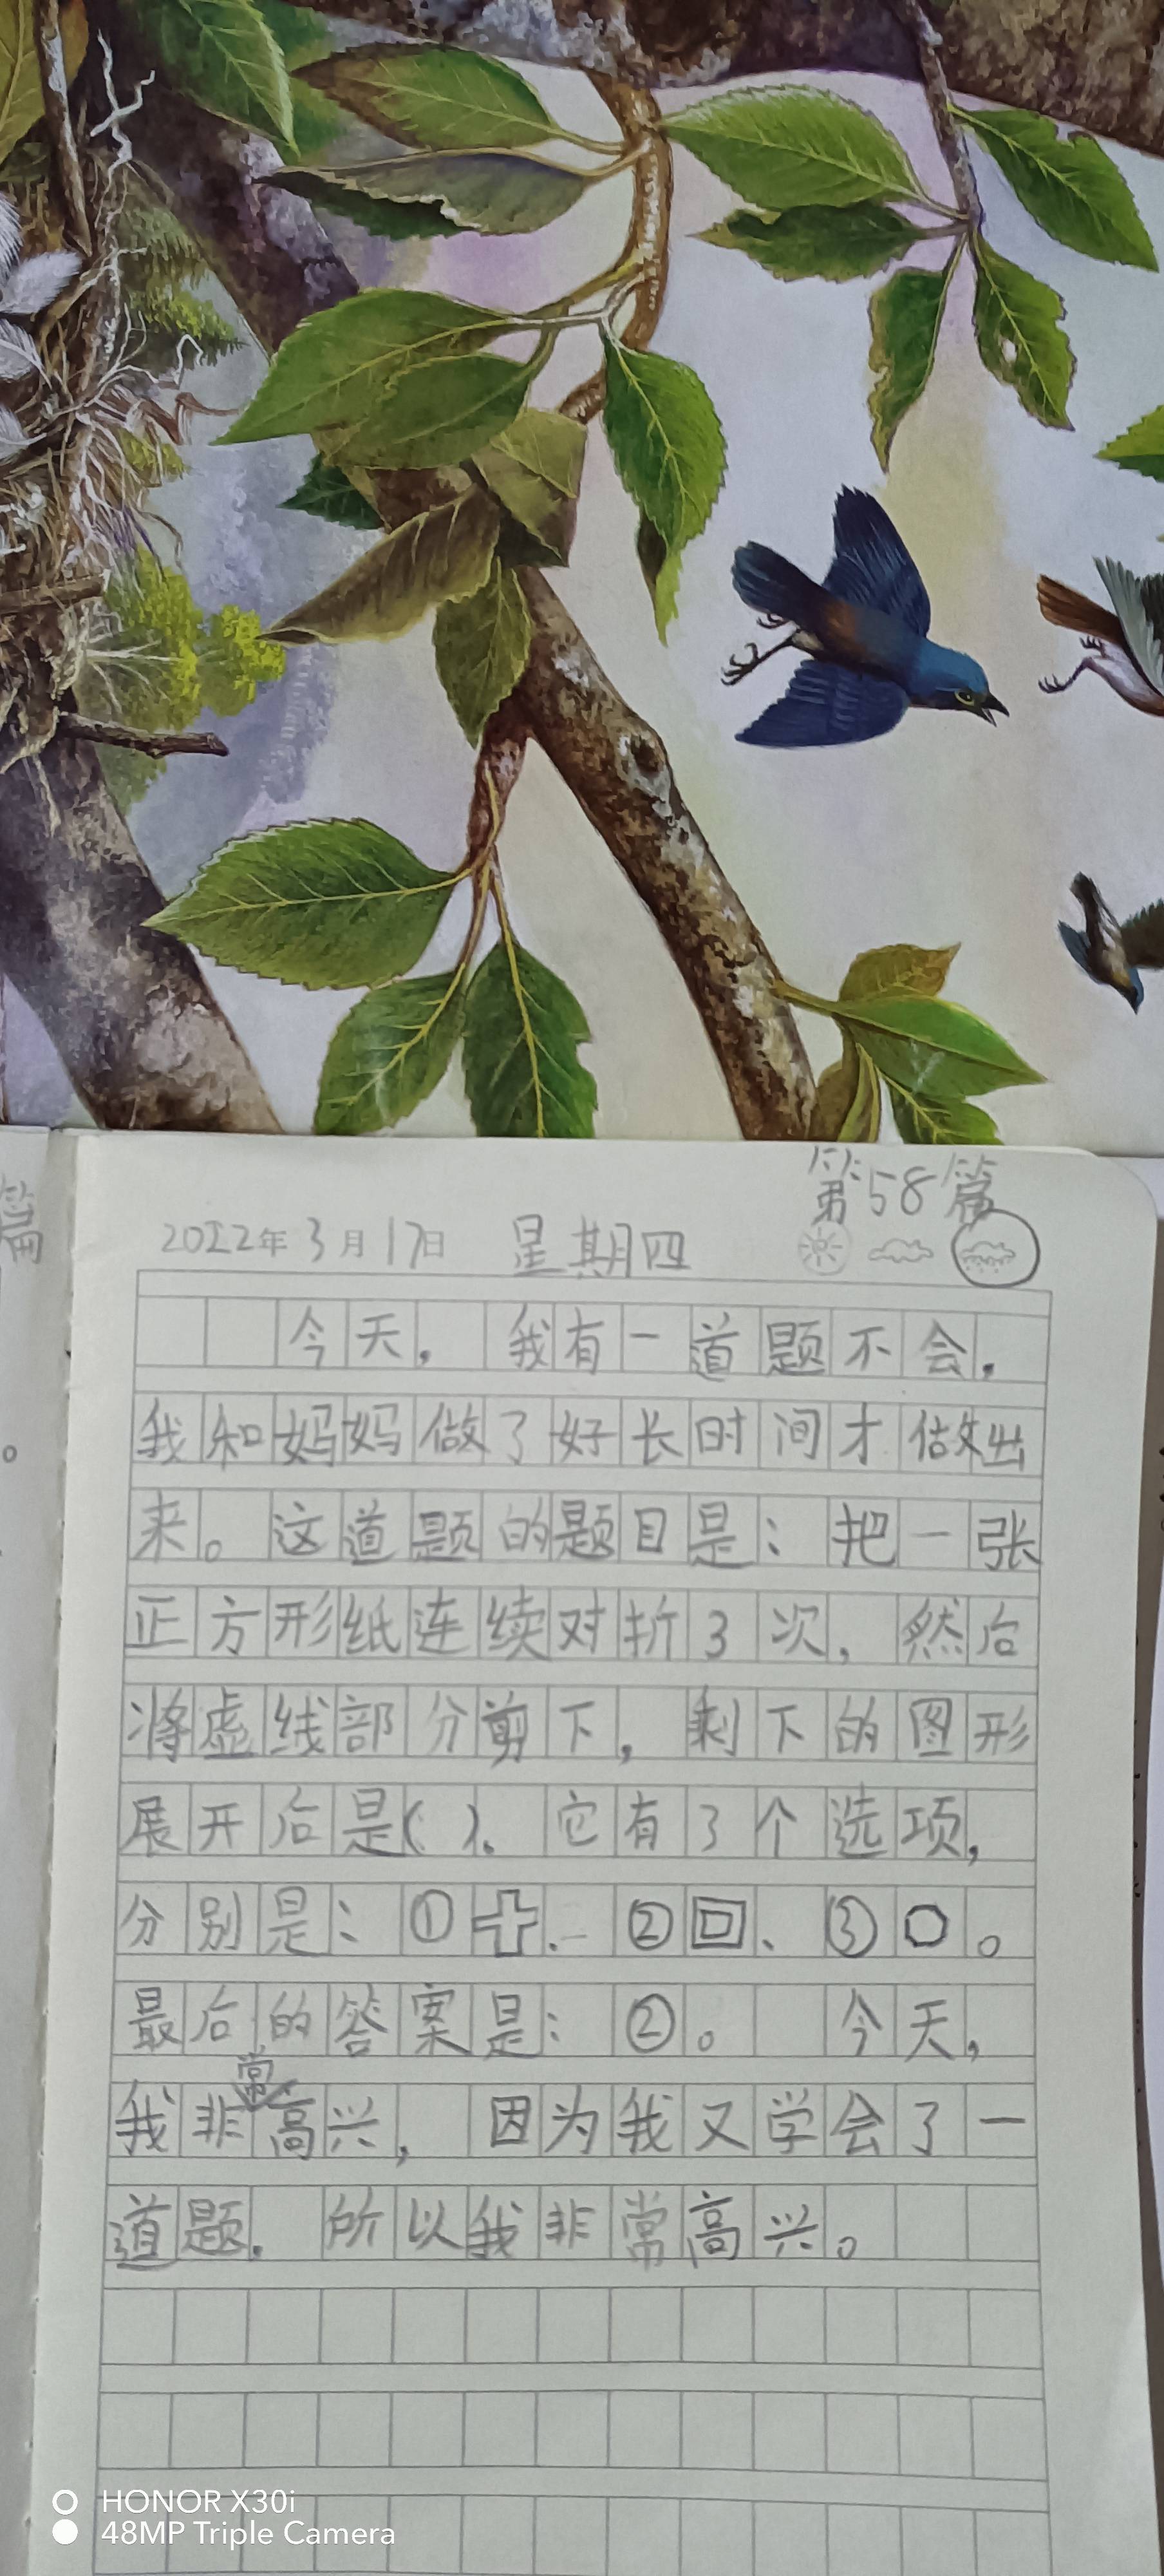 第58篇
篇
2022年3月17日 星期四
今天，我有一道题不会，
我和妈妈做了好长时间才做出
来。这道题的题目是：把一张
正方形纸连续对折3次，然后
将虚线部分剪下，剩下的图形
展开后是( )。它有3个选项，
分别是：①、②回、③○。
最后的答案是：②。 今天，
我非常高兴，因为我又学会了一
道题。所以我非常高兴。
HONOR X30i
48MP Triple Camera